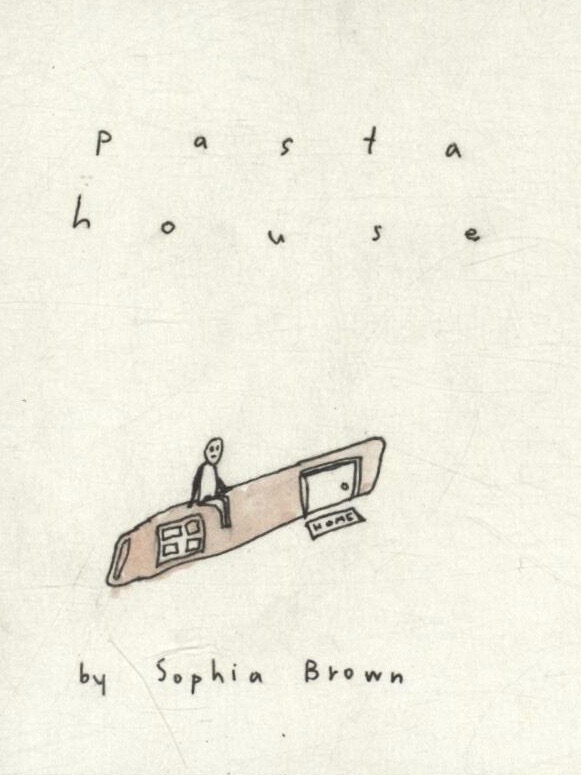 pasta
house
HOME
by Sophia Brown